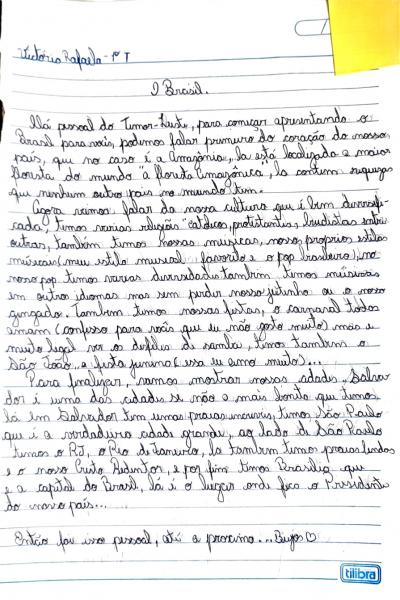 Victória Rafaela - 1º T
O Brasil.
Olá pessoal do Timor-Leste, para começar apresentando o
Brasil para vois, podemos falar primeiro do coração do nosso
país, que no caso é a Amazônia, la está localizada a maior
floresta do mundo "a floresta Amazônica", la contem riquezas
que nenhum outro pais no mundo tem.
Agora vamos falar da nossa cultura que é bem diversifi-
cada, temos varias religiois "catolicos, protestantes, budistas entre
outras, também temos nossas musicas, nosso proprio estilos
músicais (meu estilo musical favorito e o pop brasileiro), no
nosso pop temos varias diversidades também temos músicais
em outros idiomas mas sem perder nosso jeitinho ou o nosso
gingado. Também temos nossas festas, o carnaval todos
amam (confesso para vois que eu não gosto muito) mas e
muito legal ver os desfiles de samba, temos também o
São João, a festa junina (essa eu amo muito)...
Para finalizar, vamos mostrar nossas cidades, Salva-
dor é uma das cidades se não a mais bonita que temos,
lá em Salvador tem umas praias incriveis, temos São Paulo
que é a verdadeira cidade grande, ao lado de São Paulo
temos o RJ, o Rio de Janeiro, la também temos praias lindas
e o nosso Cristo Redentor, e por fim temos Brasilia que
e a capital do Brasil, lá é o lugar onde fica o Presidente
do nosso país...
Então foi isso pessoal, até a proxima... Beijos ♡
tilibra